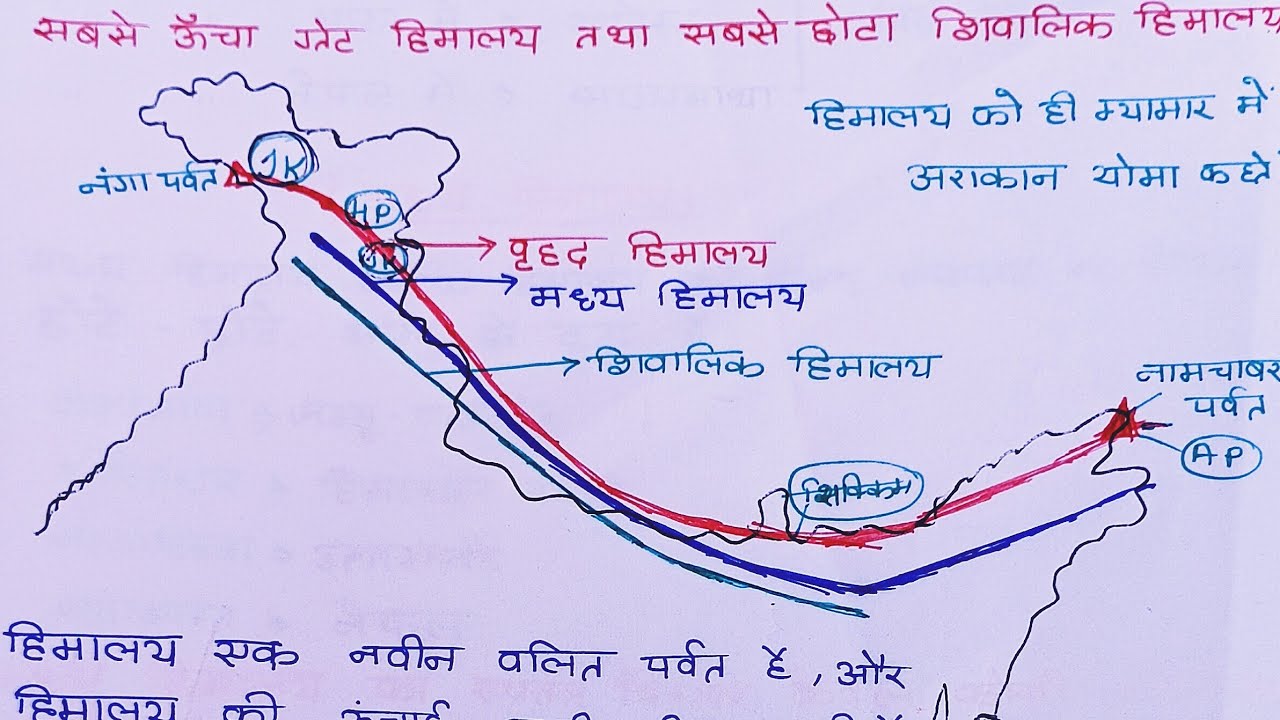 सबसे ऊँचा ग्रेट हिमालय तथा सबसे छोटा शिवालिक हिमालय
हिमालय को ही म्यामार में
अराकान योमा कहते
JK
नंगा पर्वत
HP
वृहद हिमालय
UK
मध्य हिमालय
शिवालिक हिमालय
नामचाबर
पर्वत
AP
सिक्किम
हिमालय एक नवीन वलित पर्वत है, और
हिमालय की